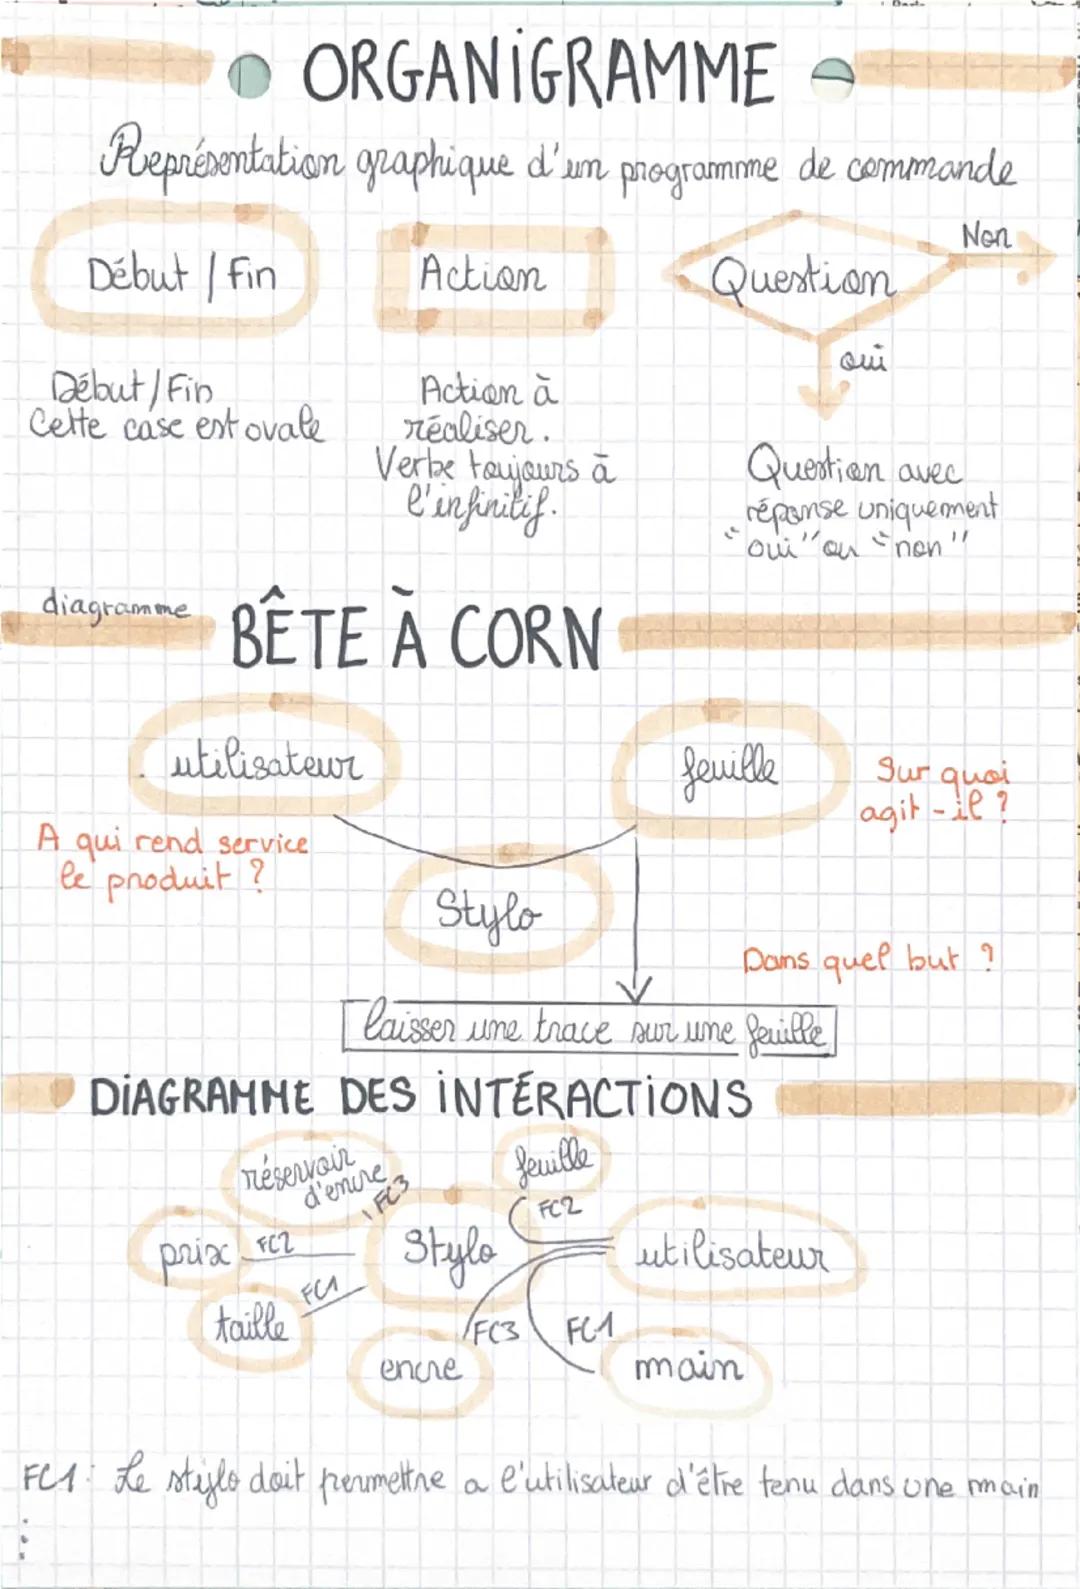 ORGANiGRAMME
Représentation graphique d'un programme de commande
Début / Fin
Action
Question
Non
oui
Début / Fin
Cette case est ovale
Action à
réaliser.
Verbe toujours à
l'infinitif.
Question avec
réponse uniquement
"oui" ou "non"
diagramme BÊTE À CORN
utilisateur
feuille
Sur quoi
agit-il ?
A qui rend service
le produit ?
Stylo
Dans quel but ?
laisser une trace sur une feuille
DiAGRAMME DES iNTÉRACTiONS
réservoir
d'encre
FC3
feuille
FC2
prix
FC2
Stylo
utilisateur
taille
FC1
FC3
FC1
encre
main
FC1: Le stylo doit permettre a l'utilisateur d'être tenu dans une main
⋮